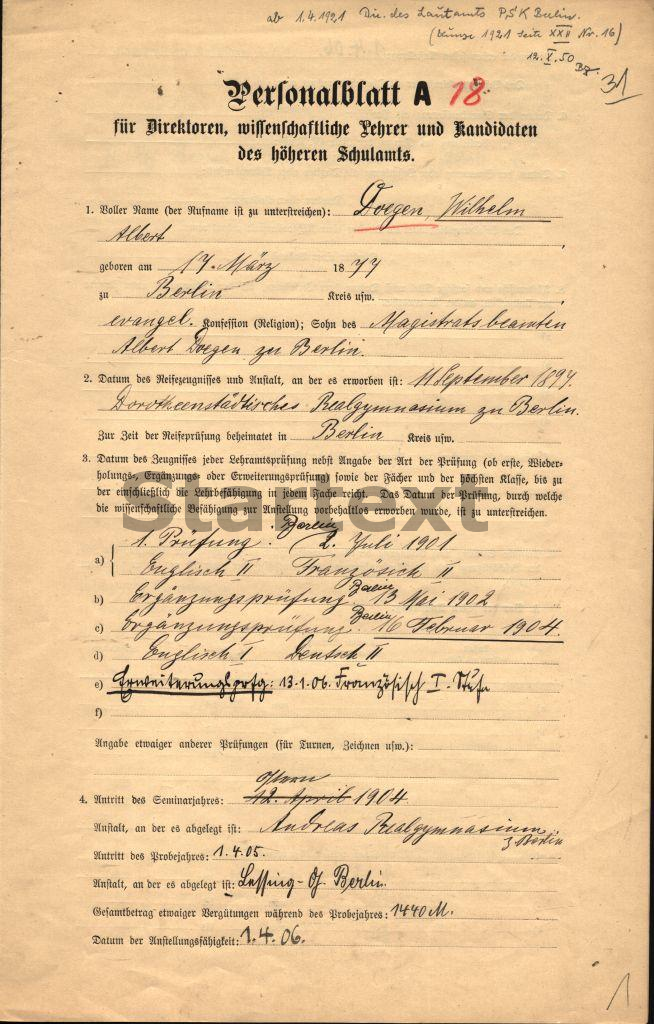 ab 1.4.1921 Dir. des Lautamts P.S.K Berlin.
(Kunze 1921 Seite XXII Nr. 16)
12. X. 50
31
Personalblatt A 18
für Direktoren, wissenschaftliche Lehrer und Kandidaten
des höheren Schulamts.
1. Voller Name (der Rufname ist zu unterstreichen): Doegen, Wilhelm
Albert
geboren am 17. März 1877
zu Berlin Kreis usw.
evangel. Konfession (Religion); Sohn des Magistratsbeamten
Albert Doegen zu Berlin.
2. Datum des Reifezeugnisses und Anstalt, an der es erworben ist: 11 September 1897.
Dorotheenstädtisches Realgymnasium zu Berlin.
Zur Zeit der Reifeprüfung beheimatet in Berlin Kreis usw.
3. Datum des Zeugnisses jeder Lehramtsprüfung nebst Angabe der Art der Prüfung (ob erste, Wieder-
holungs-, Ergänzungs- oder Erweiterungsprüfung) sowie der Fächer und der höchsten Klasse, bis zu
der einschließlich die Lehrbefähigung in jedem Fache reicht. Das Datum der Prüfung, durch welche
die wissenschaftliche Befähigung zur Anstellung vorbehaltlos erworben wurde, ist zu unterstreichen.
Startext
a) 1. Prüfung. Berlin 2. Juli 1901
Englisch II Französich II
b) Ergänzungsprüfung Berlin 13 Mai 1902
c) Ergänzungsprüfung. Berlin 16 Februar 1904.
d) Englisch I Deutsch II
e) Erweiterungsprfg: 13.1.06. Französisch I. Stufe
f)
Angabe etwaiger anderer Prüfungen (für Turnen, Zeichnen usw.):
Ostern
4. Antritt des Seminarjahres: 12. April 1904.
Anstalt, an der es abgelegt ist: Andreas Realgymnasium z Berlin
Antritt des Probejahres: 1.4.05.
Anstalt, an der es abgelegt ist: Lessing-G. Berlin.
Gesamtbetrag etwaiger Vergütungen während des Probejahres: 1440 M.
Datum der Anstellungsfähigkeit: 1.4.06.
1